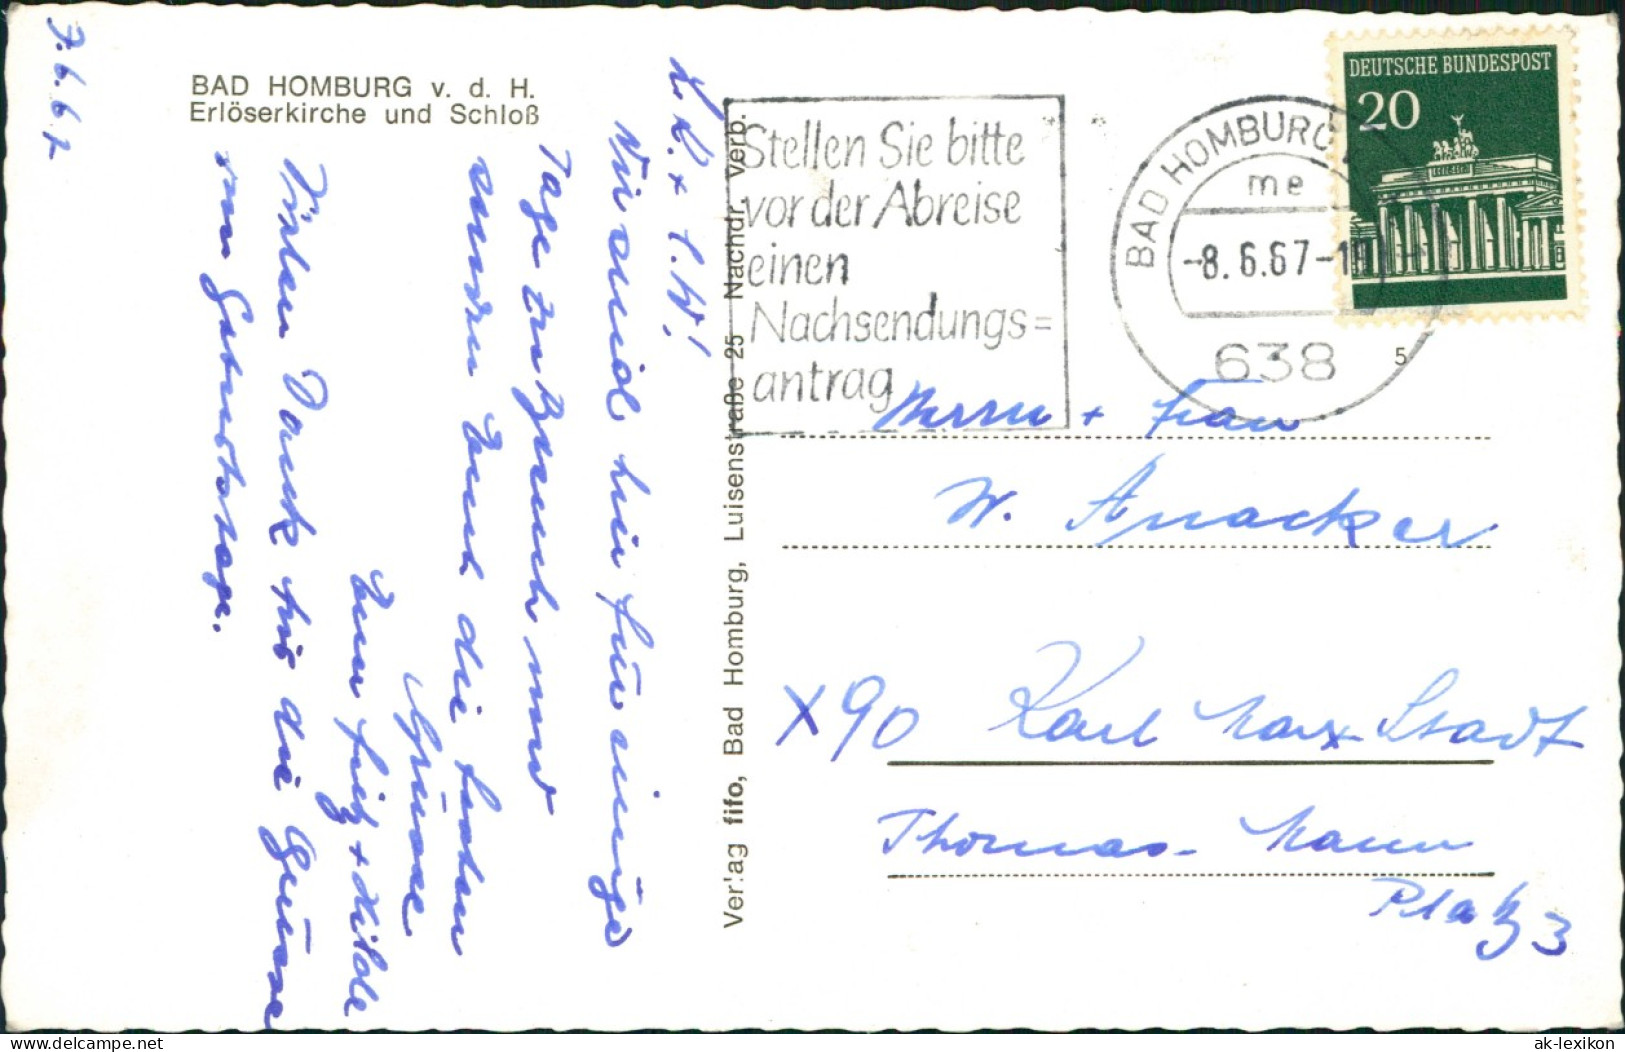 BAD HOMBURG v. d. H.
Erlöserkirche und Schloß
7.6.67
L. L. + l. W.!
Wir sind hier für einige
Tage zu Besuch und
senden Euch die besten
Grüsse
Eure Fritz + Hilde
Vielen Dank für die Grüsse
zum Geburtstage.
Verlag fifo, Bad Homburg, Luisenstraße 25 Nachdr. verb.
Stellen Sie bitte
vor der Abreise
einen
Nachsendungs=
antrag
BAD HOMBURG
me
-8.6.67-
638
5
DEUTSCHE BUNDESPOST
20
Herrn + Frau
W. Anacker
X90 Karl Marx Stadt
Thomas-Mann
Platz 3
delcampe.net
ak-lexikon